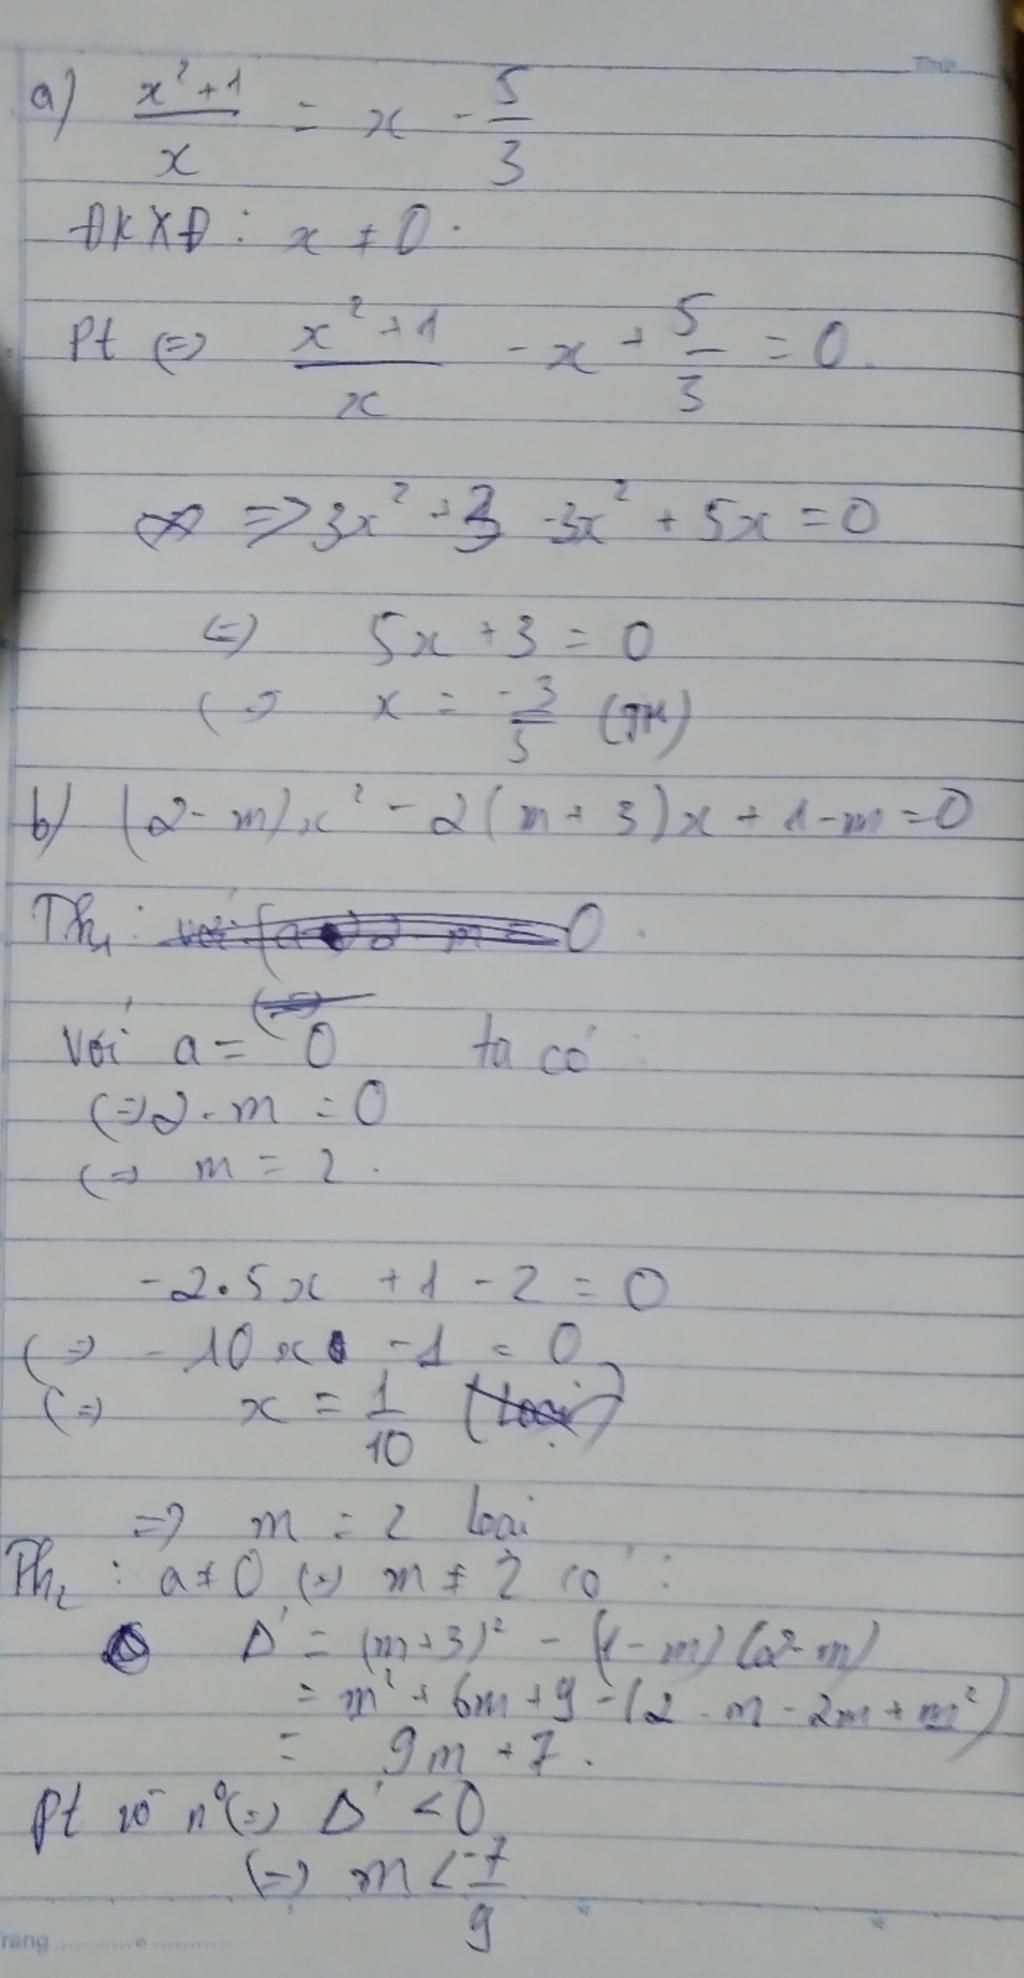 a) \frac{x²+1}{x} = x - \frac{5}{3}
ĐKXĐ: x ≠ 0.
Pt (=) \frac{x²+1}{x} - x + \frac{5}{3} = 0.
=> 3x² + 3 - 3x² + 5x = 0
(=) 5x + 3 = 0
(=) x = \frac{-3}{5} (TM)
b) (2-m)x² - 2(m+3)x + 1-m = 0
Th₁:
Với a = 0 ta có:
(=) 2-m = 0
(=) m = 2.
-2.5x + 1 - 2 = 0
(=) -10x - 1 = 0
(=) x = \frac{1}{10}
=> m = 2 loại
Th₂: a ≠ 0 (=) m ≠ 2 có:
Δ' = (m+3)² - (1-m)(2-m)
= m² + 6m + 9 - (2 - m - 2m + m²)
= 9m + 7.
Pt vô n⁰ (=) Δ' < 0
(=) m < \frac{-7}{9}
Trang